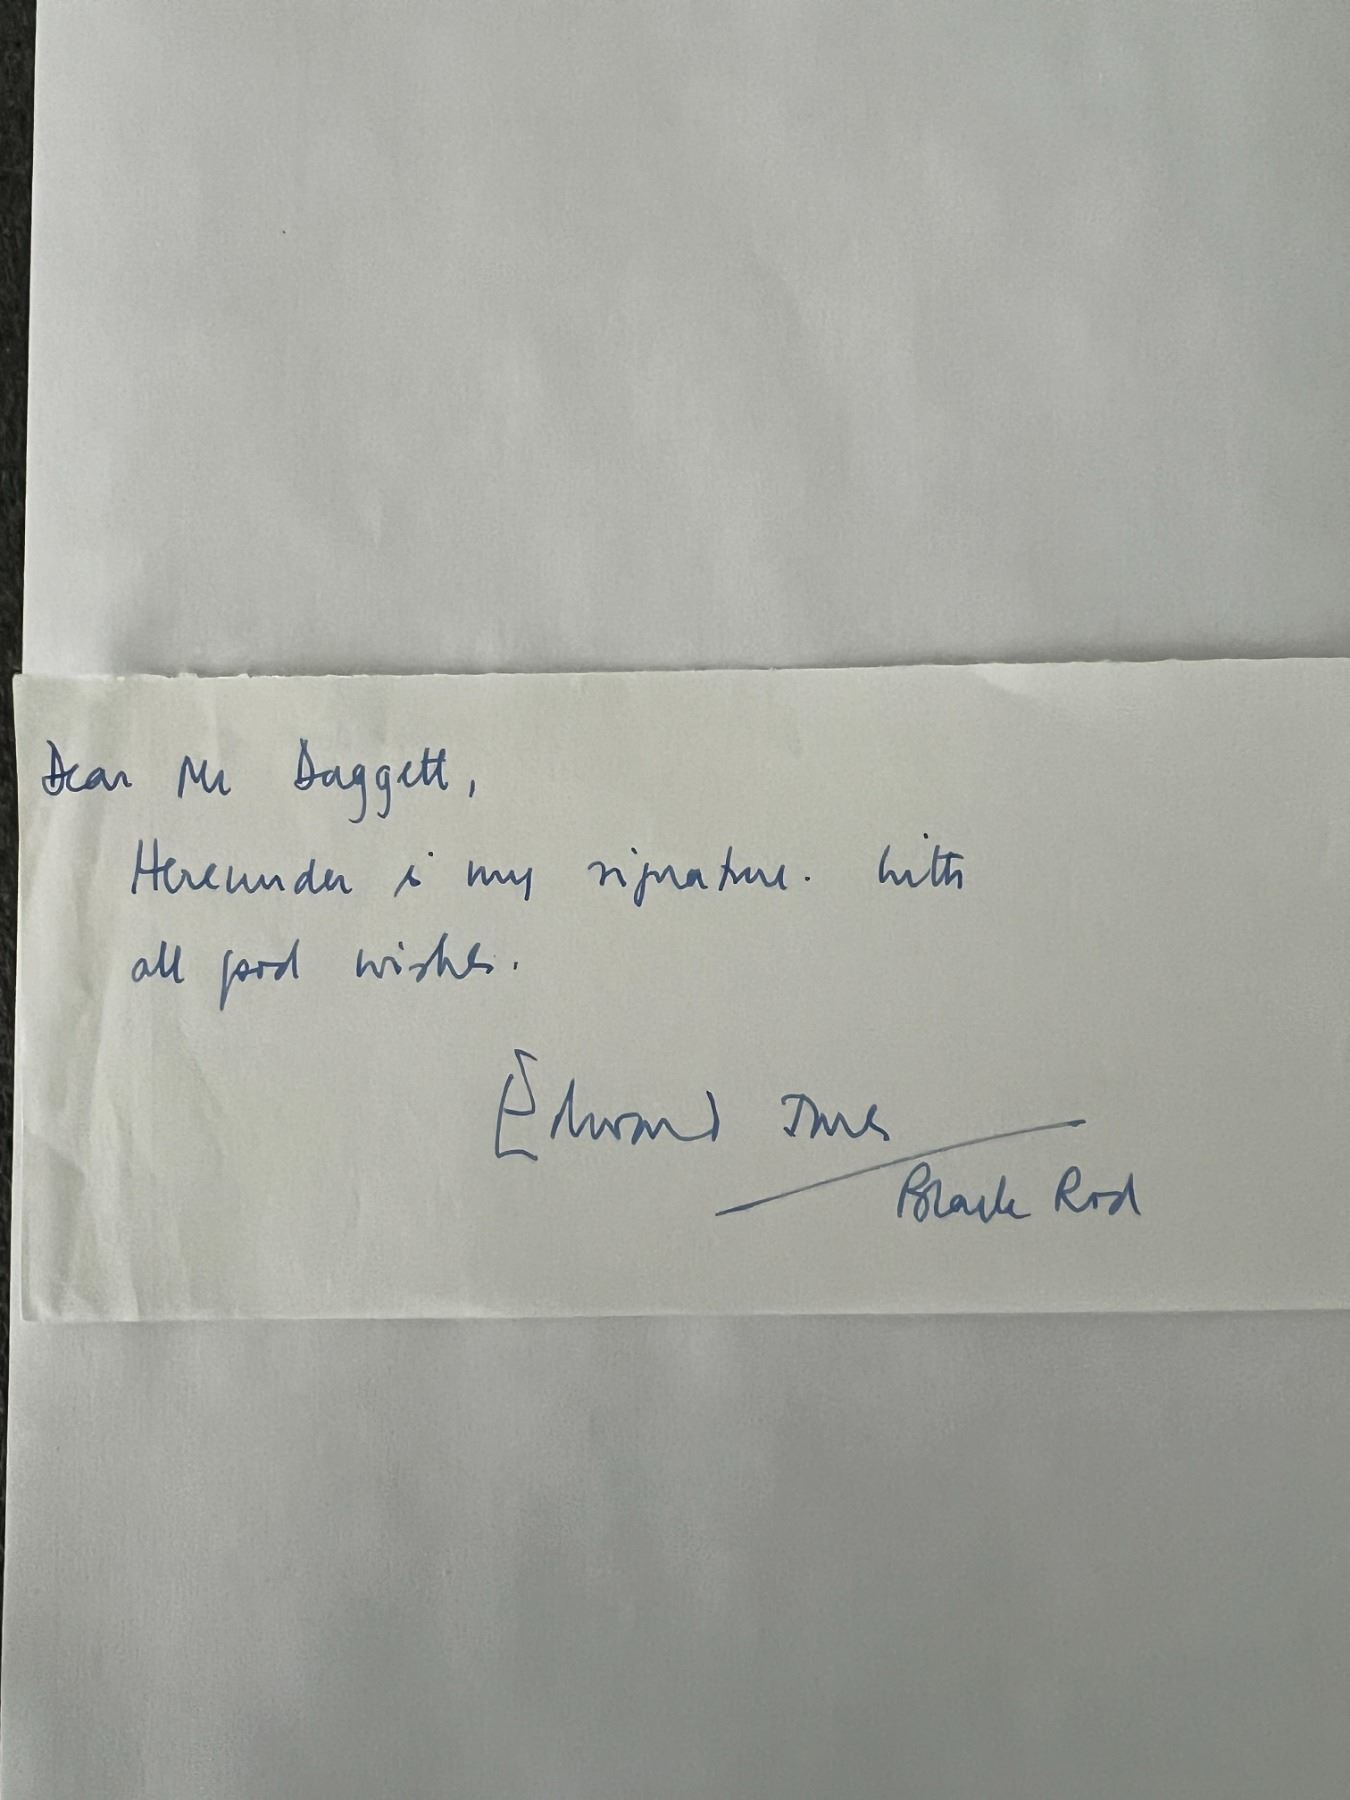 Dear Mr Daggett,
Hereunder is my signature. With
all good wishes.
Edward Jones
Black Rod